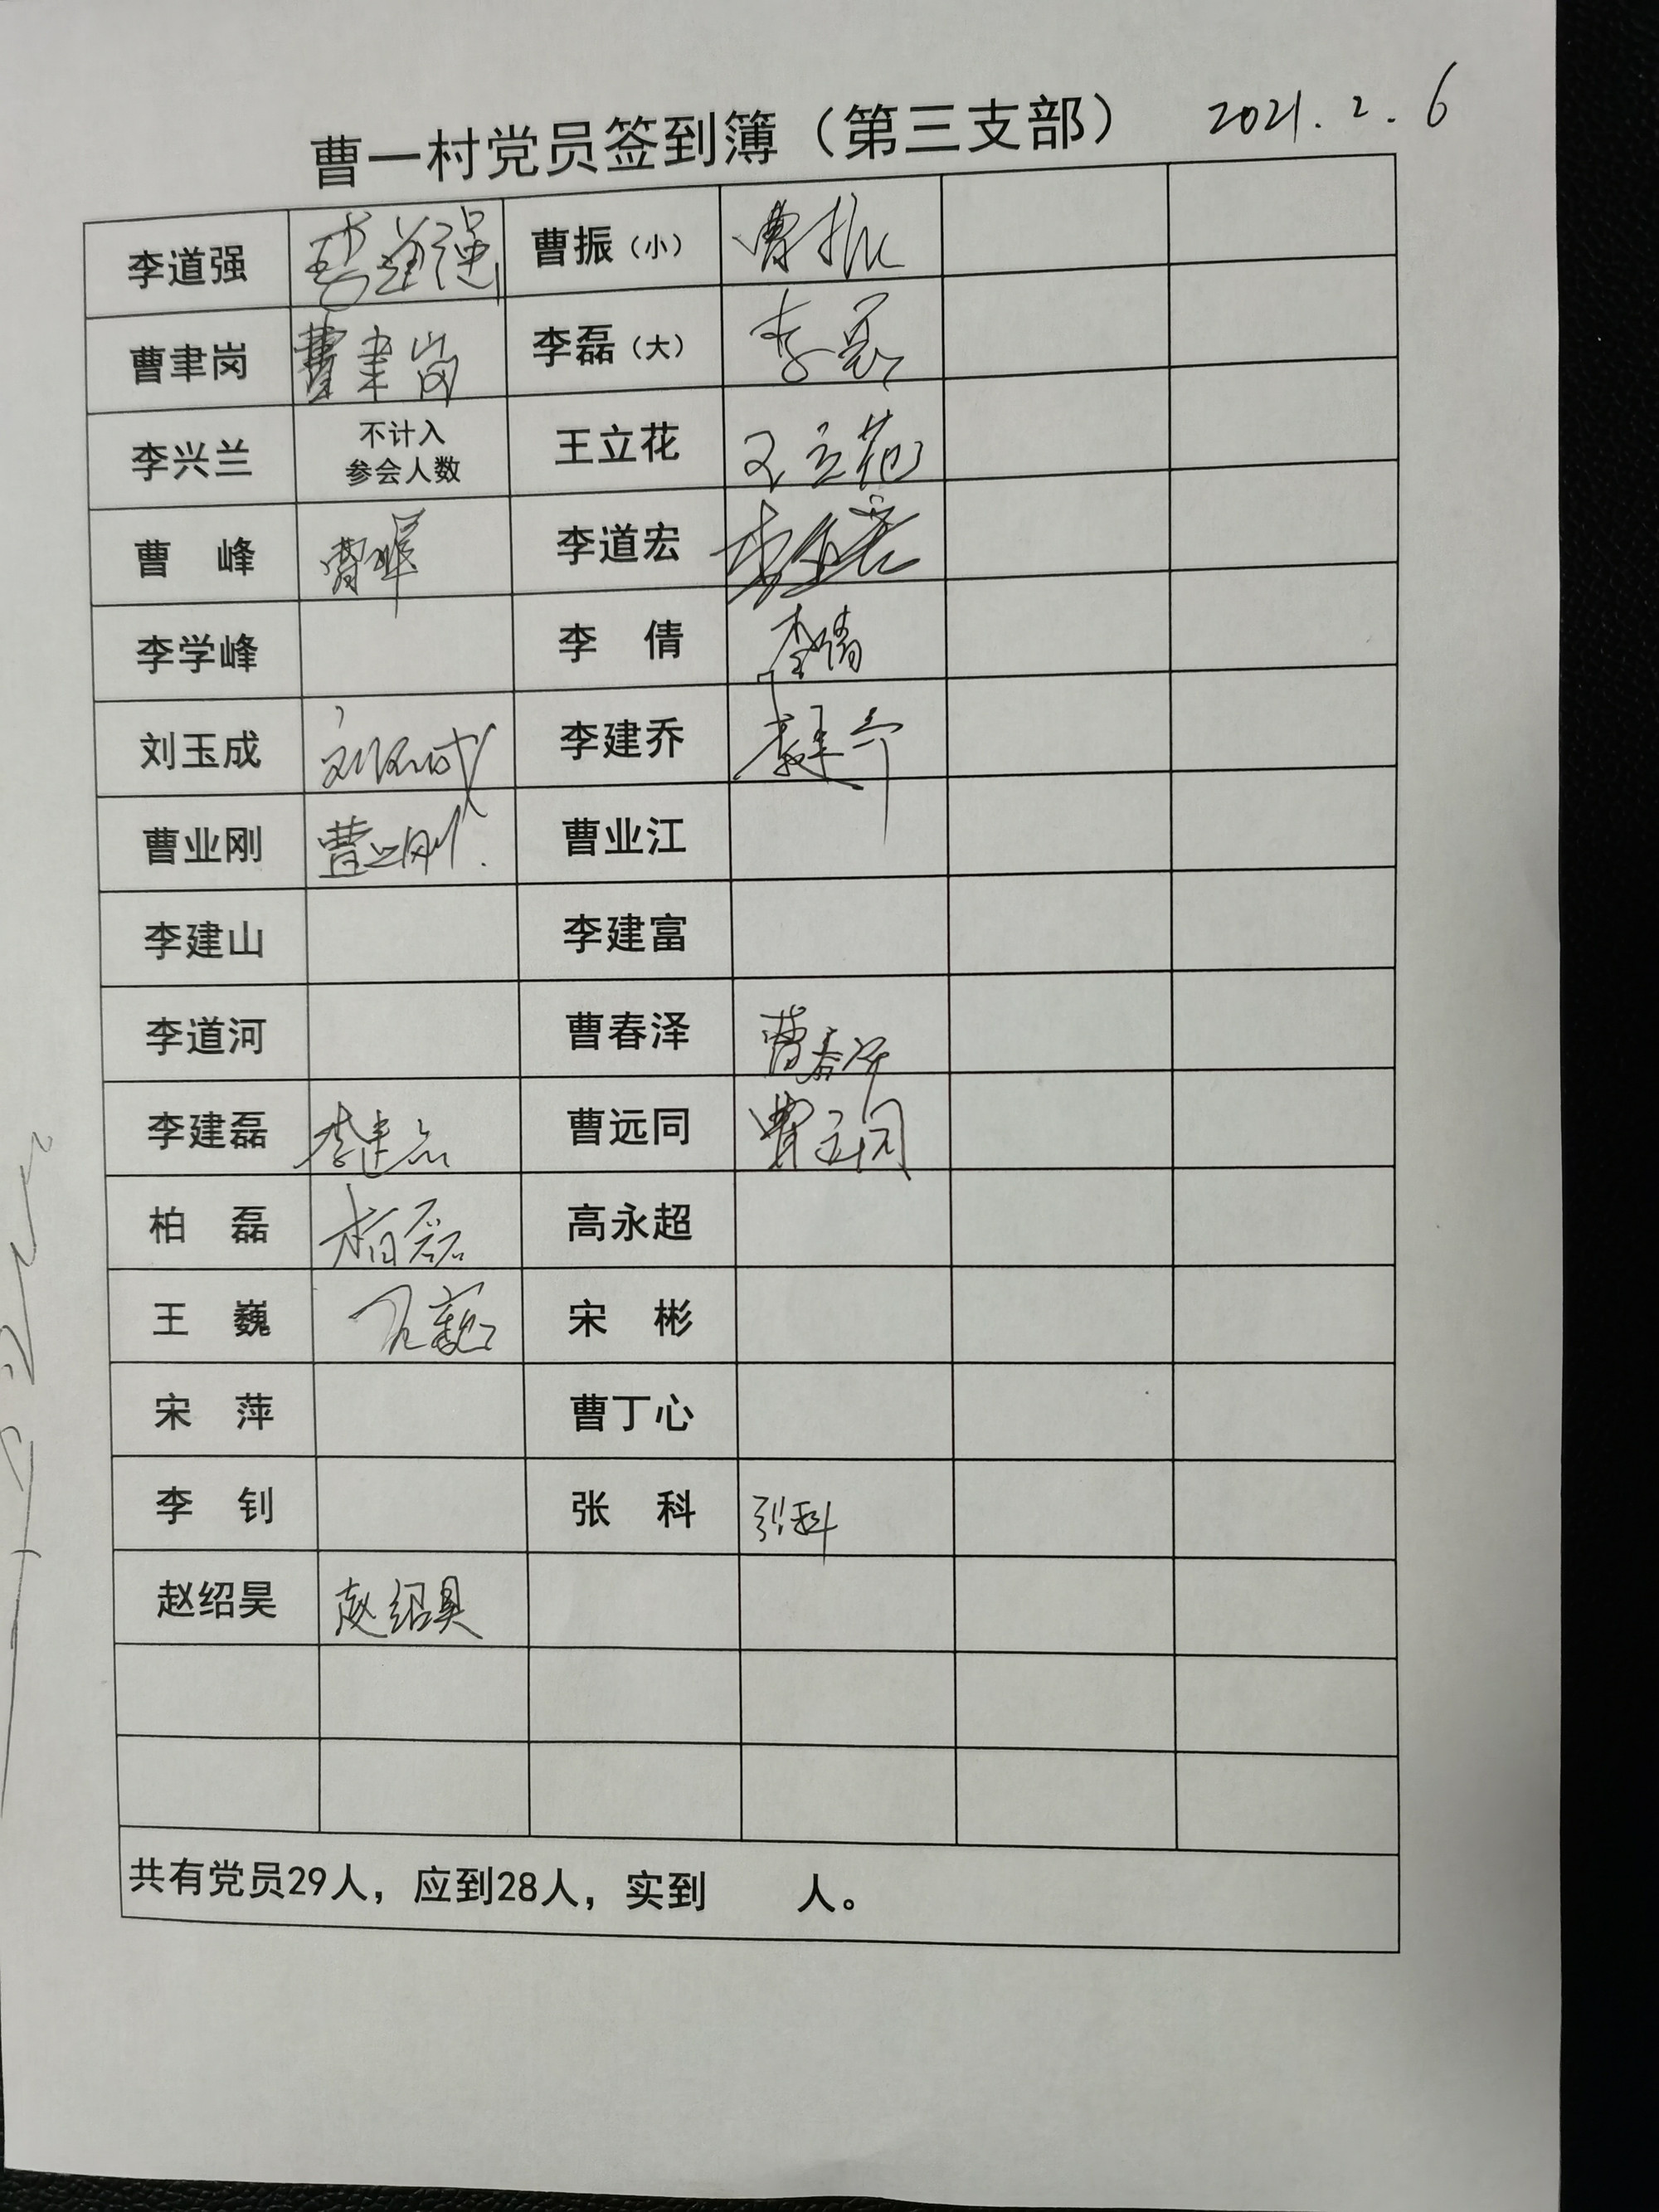 曹一村党员签到簿（第三支部） 2021.2.6
李道强 李道强 曹振（小） 曹振
曹聿岗 曹聿岗 李磊（大） 李磊
李兴兰 不计入 王立花 王立花
参会人数
曹 峰 曹峰 李道宏 李道宏
李学峰 李 倩 李倩
刘玉成 刘玉成 李建乔 李建乔
曹业刚 曹业刚. 曹业江
李建山 李建富
李道河 曹春泽 曹春泽
李建磊 李建磊 曹远同 曹远同
柏 磊 柏磊 高永超
王 巍 王巍 宋 彬
宋 萍 曹丁心
李 钊 张 科 张科
赵绍昊 赵绍昊
共有党员29人，应到28人，实到 人。